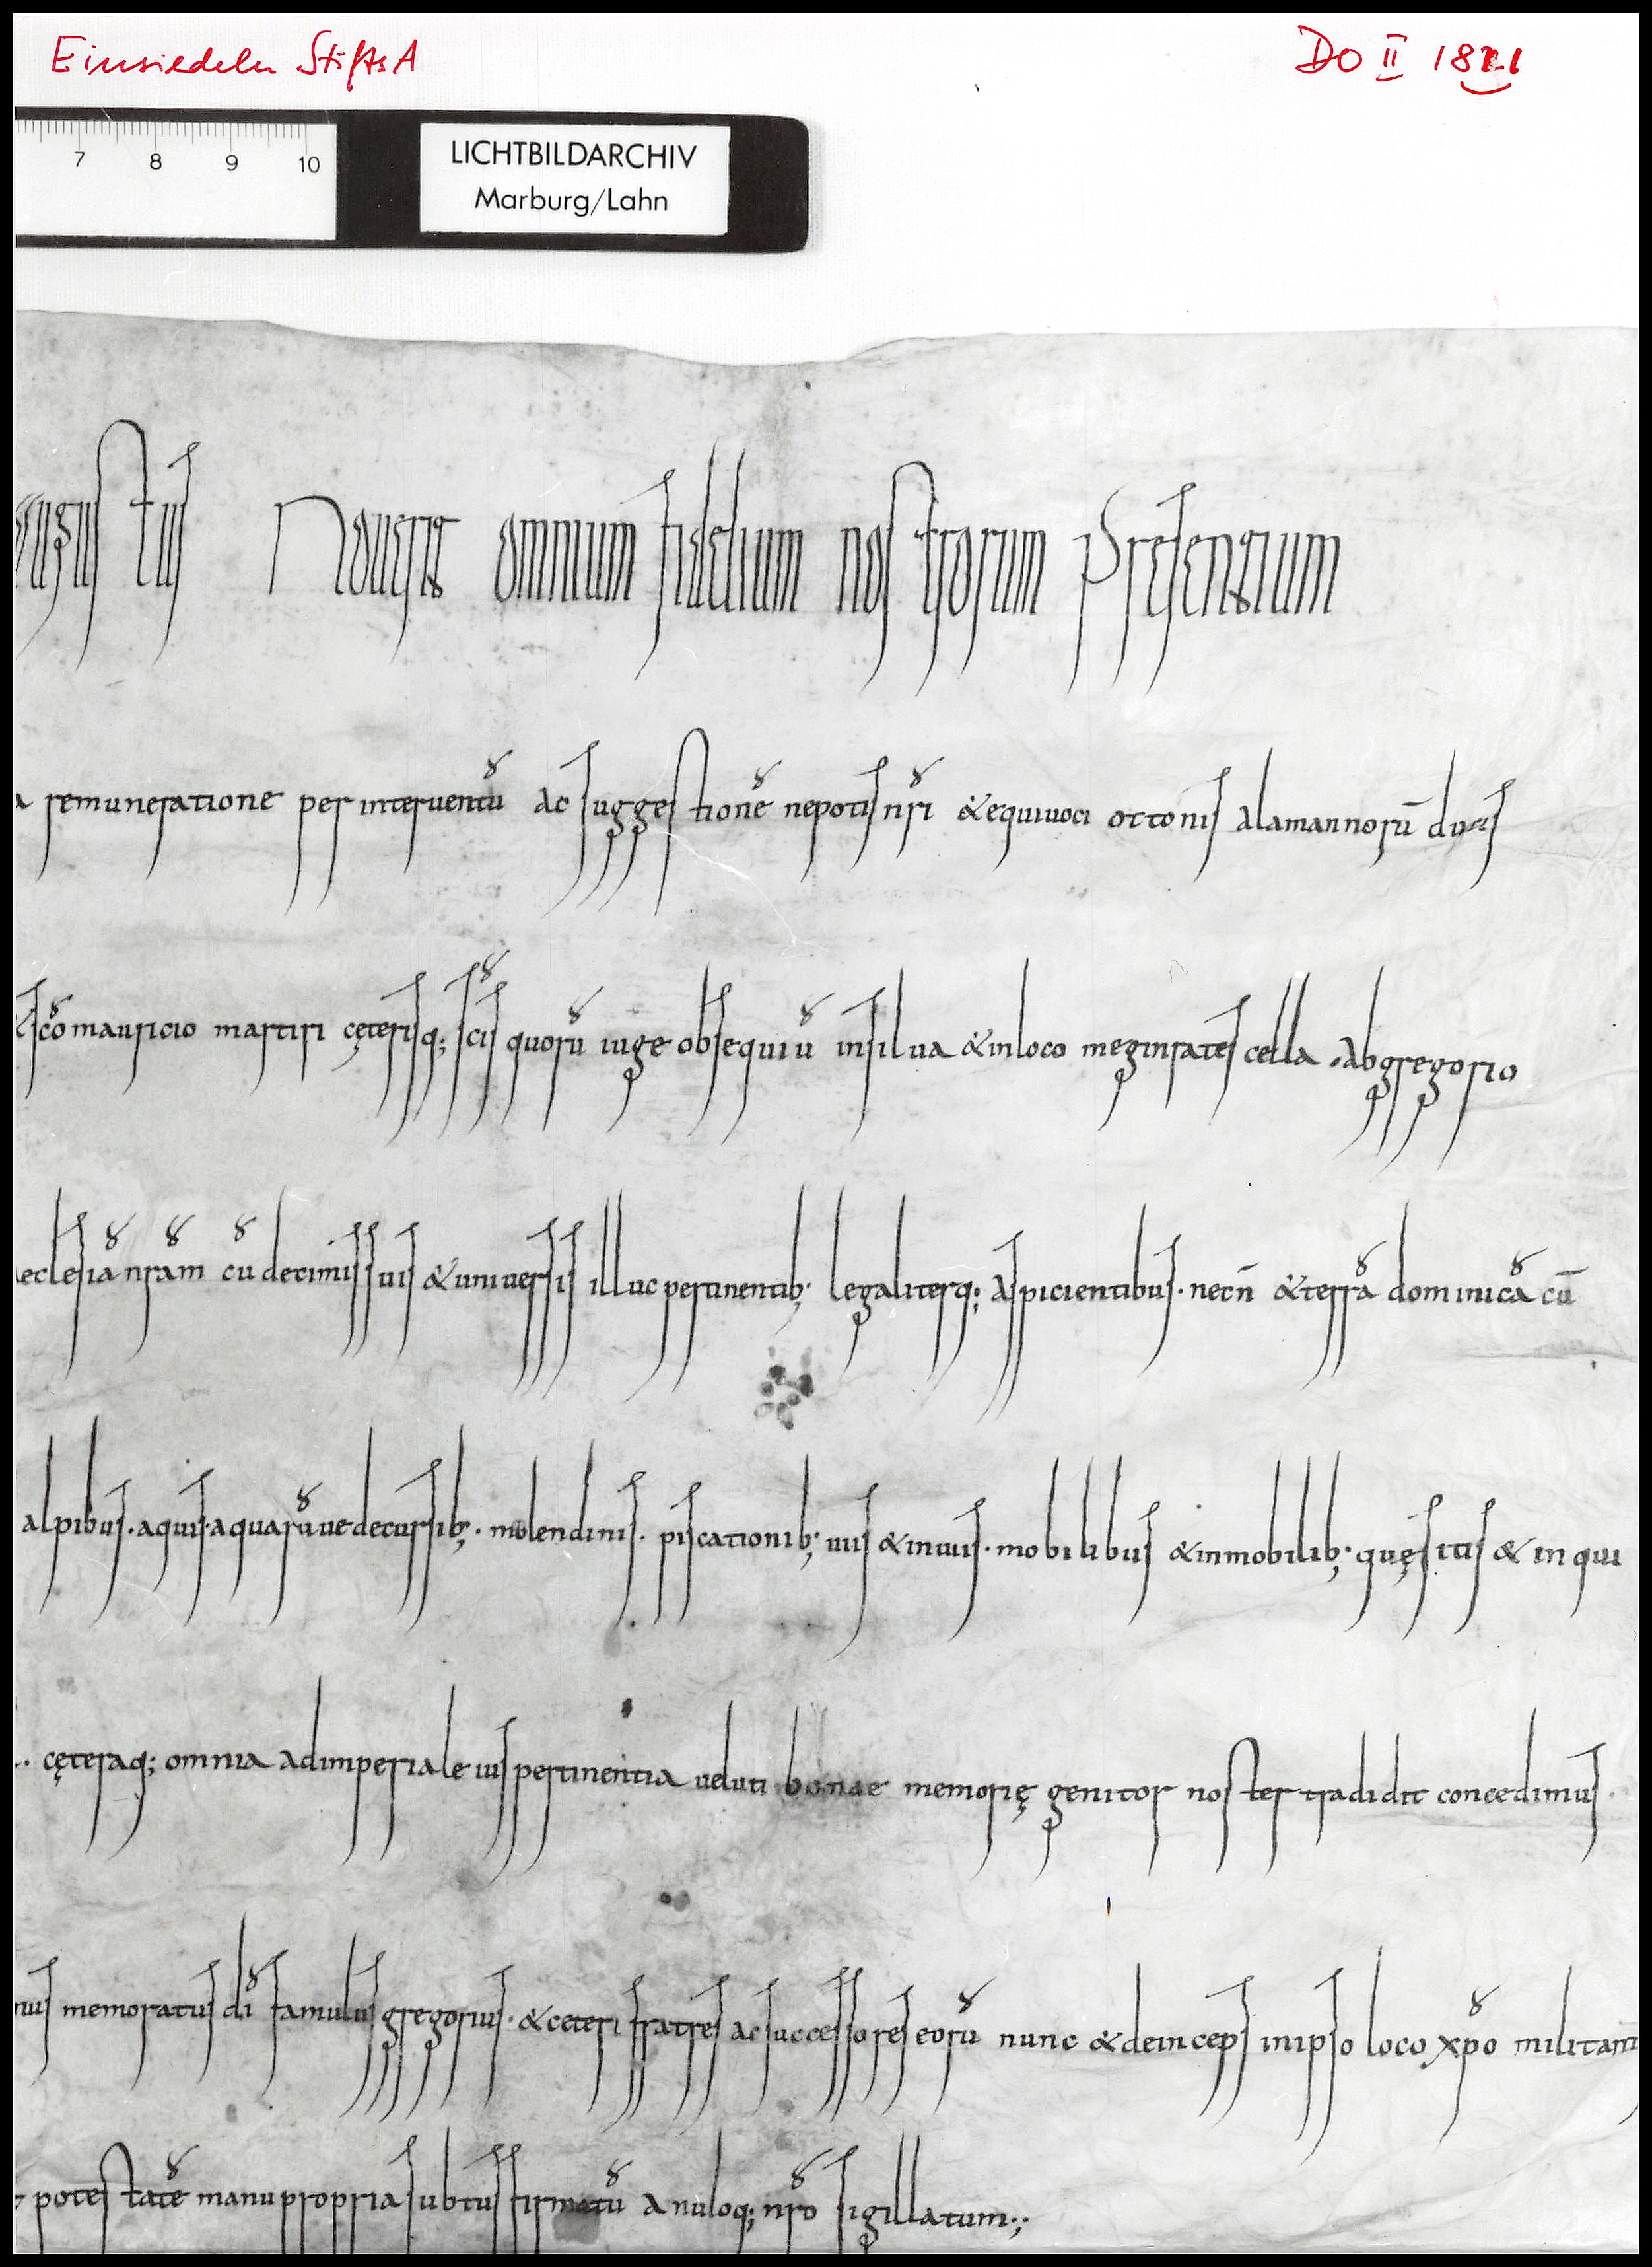 Einsiedeln StiftsA
DO II 181
7 8 9 10
LICHTBILDARCHIV
Marburg/Lahn
gustus Noverit omnium fidelium nostrorum presentium
remuneratione per interventū ac suggestionē nepotis nr̄i & equivoci ottonis alamannorū ducis
sc̄o mauricio martiri cęterisq; sc̄is quorū iuge obsequiū in silva & in loco meginrates cella · ab gregorio
eclesiā nr̄am cū decimis suis & universis illuc pertinentib; legaliterq; aspicientibus · necn̄ & terrā dominicā cū
alpibus · aquis · aquarūve decursib; · molendinis · piscationib; viis & inviis · mobilibus & inmobilib; · quęsitis & inqui
· cęteraq; omnia ad imperiale ius pertinentia veluti bonae memorię genitor noster tradidit concedimus ·
memoratus dī famulus gregorius · & ceteri fratres ac successores eorū nunc & deinceps in ipso loco xp̄o militant
potestatē manu propria subtus firmatū anuloq; nr̄o sigillatum ·;